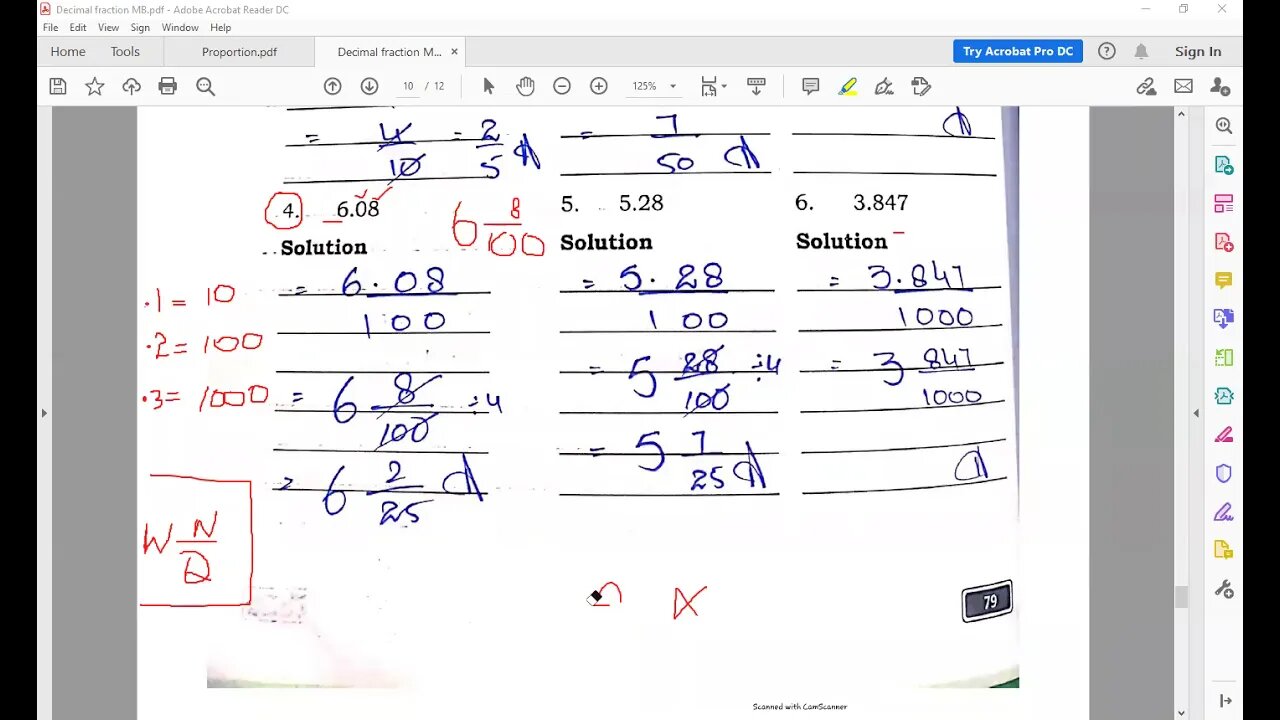 Decimal fraction MB.pdf - Adobe Acrobat Reader DC
File Edit View Sign Window Help
Home Tools Proportion.pdf Decimal fraction M... × Try Acrobat Pro DC Sign In
10 / 12 125%
= 4/10 = 2/5
= 7/50
4. 6.08
6 8/100
Solution
= 6.08/100
= 6 8/100 ÷4
= 6 2/25
5. 5.28
Solution
= 5.28/100
= 5 28/100 ÷4
= 5 7/25
6. 3.847
Solution
= 3.847/1000
= 3 847/1000
.1 = 10
.2 = 100
.3 = 1000
W N/D
79
Scanned with CamScanner